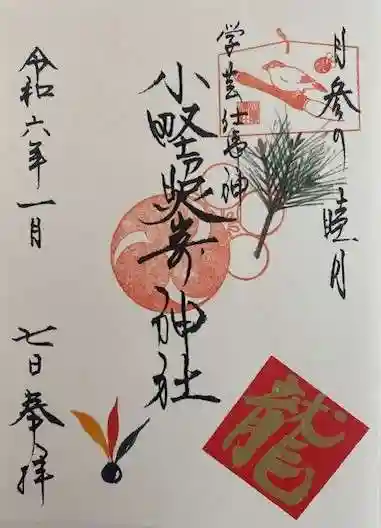 月参り 睦月
学芸仕事神
小野照嵜神社
令和六年一月
七日奉拝
龍